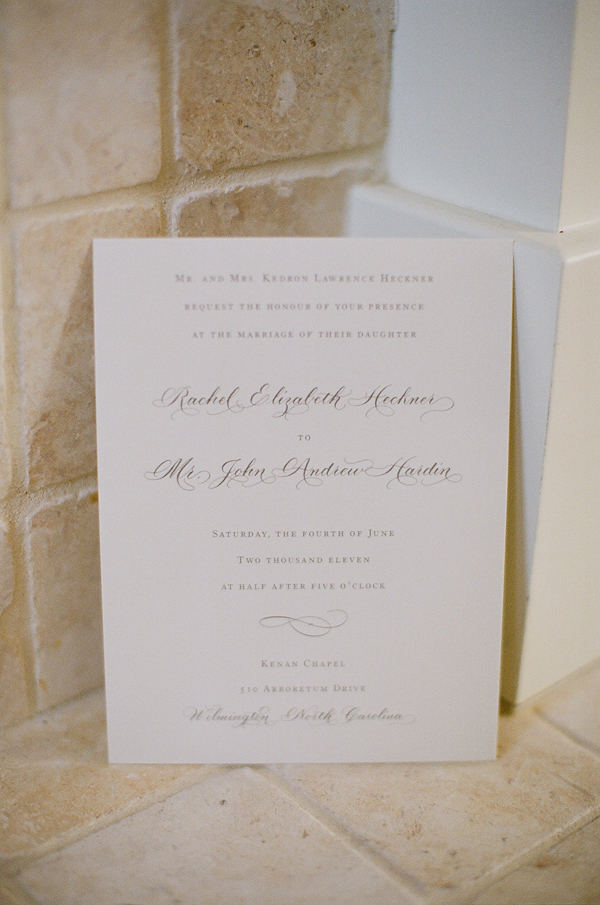 Mr. and Mrs. Kedron Lawrence Heckner
request the honour of your presence
at the marriage of their daughter
Rachel Elizabeth Heckner
to
Mr. John Andrew Hardin
Saturday, the fourth of June
Two thousand eleven
at half after five o'clock
Kenan Chapel
510 Arboretum Drive
Wilmington, North Carolina